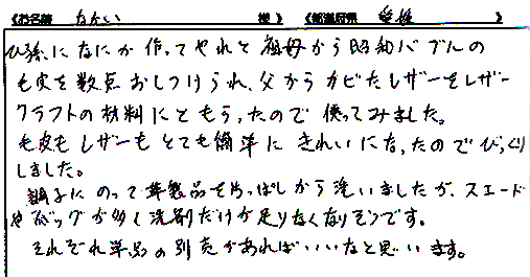 《お名前 なかい 様》 《都道府県 愛媛
ひ孫になにか作ってやれと祖母から昭和バブルの
毛皮を数点おしつけられ、父からカビたレザーをレザー
クラフトの材料にともらったので使ってみました。
毛皮もレザーもとても簡単にきれいになったのでびっくり
しました。
調子にのって革製品を片っぱしから洗いましたが、スエード
やバッグが多く洗剤だけが足りなくなりそうです。
それぞれ単品の別売があればいいなと思います。